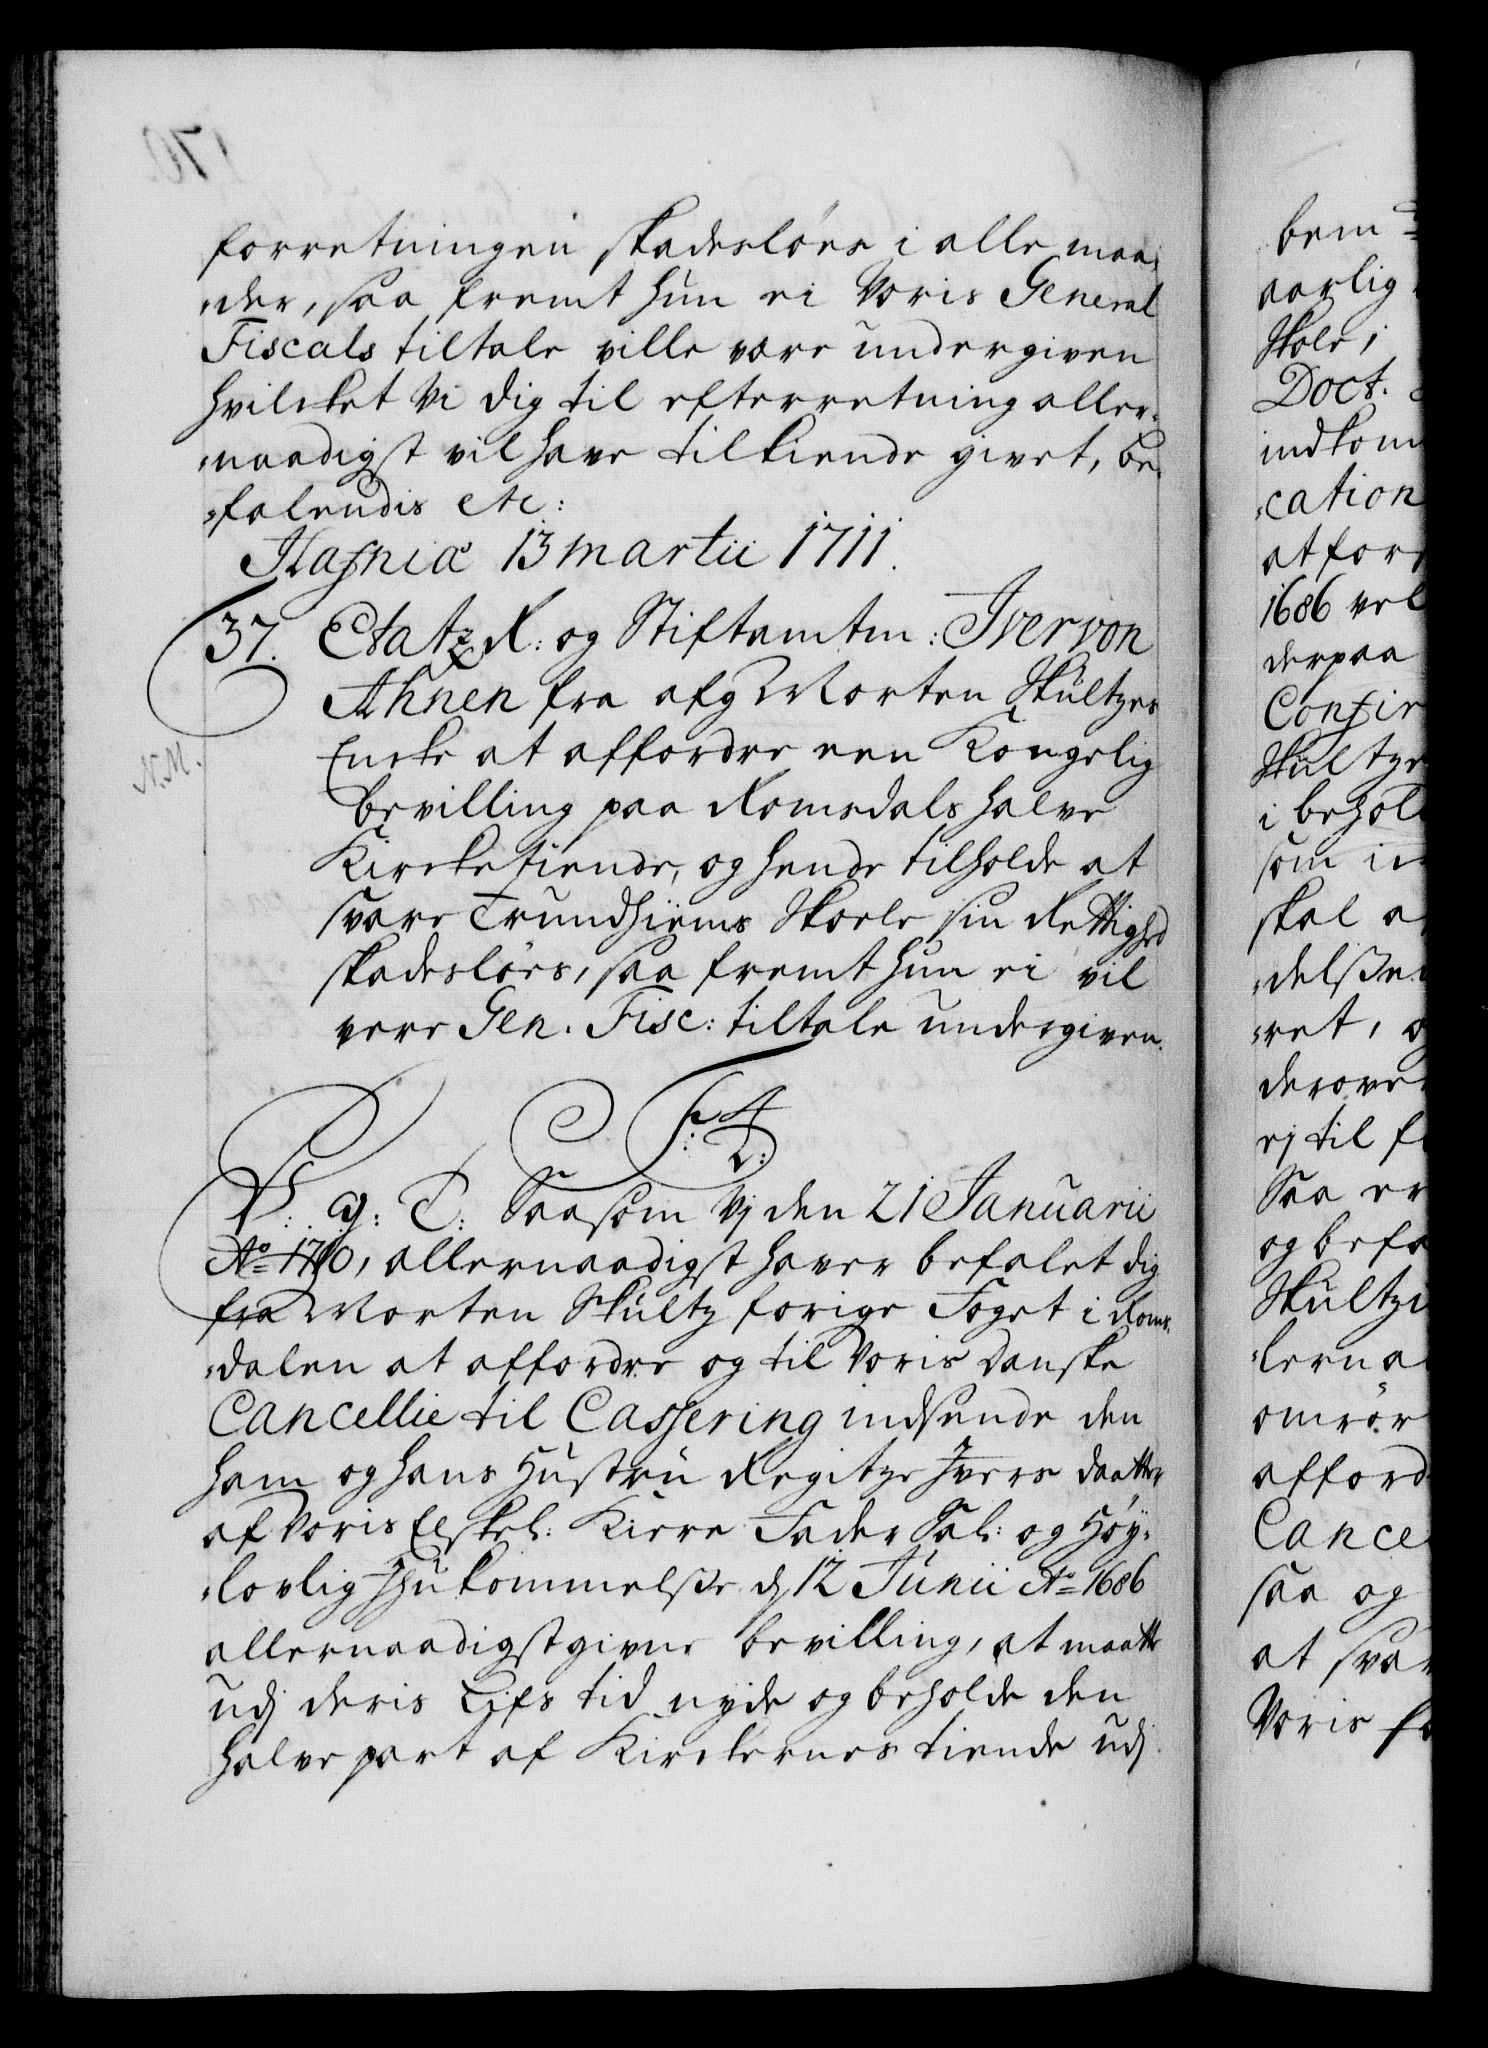 forretningen skadesløes i alle maa„
„der, saa fremt hun ei Voris General
Fiscals tiltale ville være undergiven
hvilcket Vi dig til efterretning aller„
„naadigst vil have tilkiende givet, be„
„falendis etc:
Hafniæ 13 martii 1711.
37. Etatz R: og Stiftamtm: Iver von
Ahnen fra afg Morten Skultzes
N.M.
Encke at affordre een Kongelig
bevilling paa Romsdals halve
Kircketiende, og hende tilholde at
svare Trundhiems Skoele sin Rettighed
skadesløes, saa fremt hun ei vil
vere Gen. Fisc: tiltale undergiven.
F: 4
V: g: T: Saasom Vj den 21 Januarii
Ao 1710, allernaadigst haver befalet dig
fra Morten Skultz forige Foget i Roms„
„dalen at affordre og til Voris danske
Cancellie til Cassering indsende den
ham og hans Hustru Regitze Ivers daatter
af Voris Elskel: Kiere Fader Sal: og Høy„
„lovlig Ihukommelse d 12 Junii Ao 1686
allernaadigst givne bevilling, at maatte
udj deris Lifs tid nyde og beholde den
halve part af Kirckernes tiende udj
bem
aarlig
Skole i
Doct.
indkom
„cation
at for
1686 vel
derpaa
Confir
Skultze
i behol
som i
skal a
„delße
„ret, o
derove
ej til f
Saa er
og befa
Skultzi
„lerna
omrør
afford
Cance
saa og
at svar
Voris f